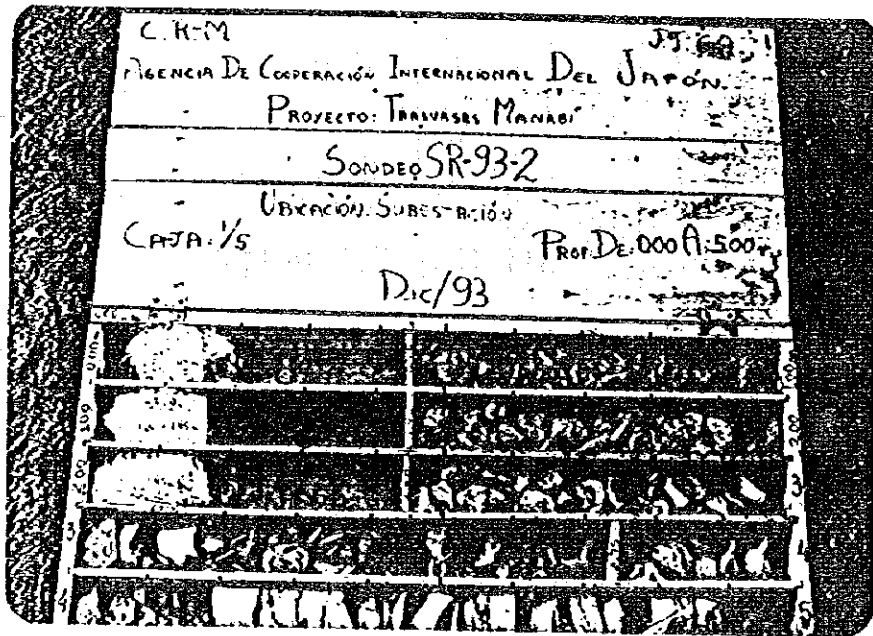 C.R-M
AGENCIA DE COOPERACIÓN INTERNACIONAL DEL JAPÓN
PROYECTO: TRASVASES MANABÍ
SONDEO SR-93-2
UBICACIÓN: SUBESTACIÓN
CAJA: 1/5 PROF. DE: 000 A: 500
Dic/93
1.00 2.00
2.00 3
3
4 5